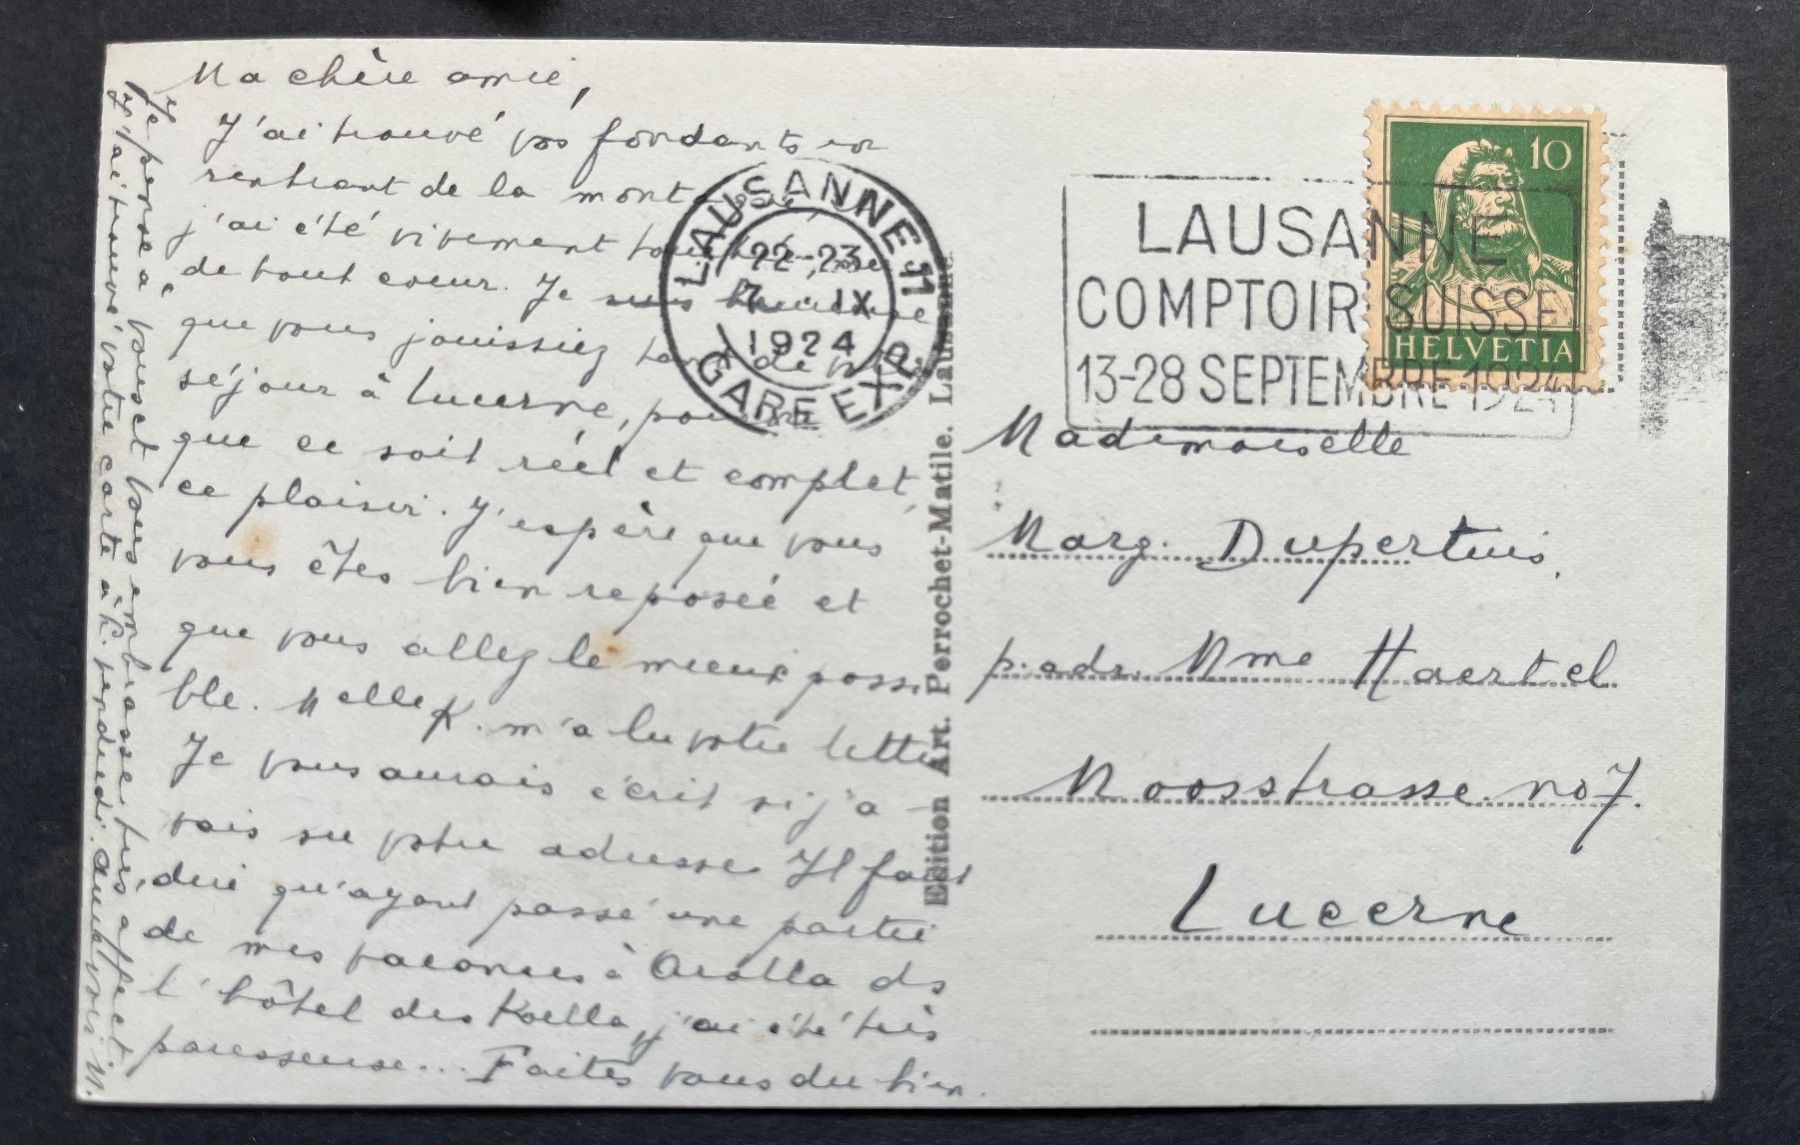 Ma chère amie,
J'ai trouvé vos fondants en
rentrant de la montagne,
j'ai été vivement touchée, merci
de tout coeur. Je suis heureuse
que vous jouissiez tant de votre
séjour à Lucerne, pourvu
que ce soit réel et complet,
ce plaisir. J'espère que vous
vous êtes bien reposée et
que vous allez le mieux possi
ble. Melle K. m'a lu votre lettre
Je vous aurais écrit si j'a-
vais su votre adresse. Il faut
dire qu'ayant passé une partie
de mes vacances à Arolla ds
l'hôtel des Kœlla, j'ai été très
paresseuse... Faites vous du bien.
Je pense à vous et vous embrasse très affect
J'ai trouvé votre carte à h. vendredi. Au revoir M.
LAUSANNE 11
22-23
7. IX
1924
GARE EXP.
LAUSANNE
COMPTOIR SUISSE
13-28 SEPTEMBRE 1924
10
HELVETIA
Edition Art. Perrochet-Matile. Lausanne.
Mademoiselle
Marg. Dupertuis,
p. adr. Mme Haertel.
Moosstrasse no 7.
Lucerne